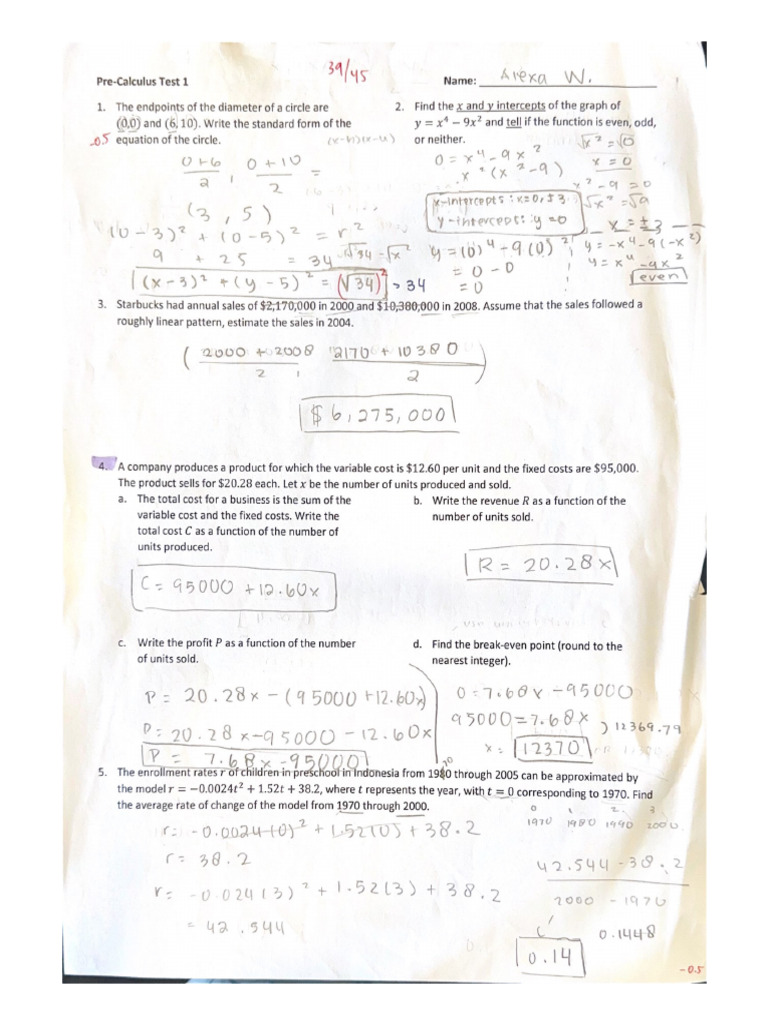 39/45
Pre-Calculus Test 1
Name: Arexa W.
1. The endpoints of the diameter of a circle are
(0,0) and (6, 10). Write the standard form of the
-0.5 equation of the circle.
0+6/2 , 0+10/2 =
(3, 5)
(0-3)² + (0-5)² = r²
9 + 25 = 34 √34 = √x²
(x-3)² + (y-5)² = (√34)² > 34
2. Find the x and y intercepts of the graph of
y = x⁴ − 9x² and tell if the function is even, odd,
or neither.
0 = x⁴ - 9x²
x²(x²-9)
√x² = √0
x = 0
x² - 9 = 0
√x² = √9
x = ±3
x-intercepts: x=0, ±3
y-intercepts: y=0
y = (0)⁴ - 9(0)²
= 0 - 0
= 0
y = -x⁴ - 9(-x²)
y = x⁴ - 9x²
even
3. Starbucks had annual sales of $2,170,000 in 2000 and $10,380,000 in 2008. Assume that the sales followed a
roughly linear pattern, estimate the sales in 2004.
( 2000 + 2008 / 2 , 2170 + 10380 / 2 )
$6,275,000
4. A company produces a product for which the variable cost is $12.60 per unit and the fixed costs are $95,000.
The product sells for $20.28 each. Let x be the number of units produced and sold.
a. The total cost for a business is the sum of the
variable cost and the fixed costs. Write the
total cost C as a function of the number of
units produced.
C = 95000 + 12.60x
b. Write the revenue R as a function of the
number of units sold.
R = 20.28x
c. Write the profit P as a function of the number
of units sold.
P = 20.28x - (95000 + 12.60x)
P = 20.28x - 95000 - 12.60x
P = 7.68x - 95000
d. Find the break-even point (round to the
nearest integer).
0 = 7.68x - 95000
95000 = 7.68x
) 12369.79
x = 12370
5. The enrollment rates r of children in preschool in Indonesia from 1980 through 2005 can be approximated by
70
the model r = −0.0024t² + 1.52t + 38.2, where t represents the year, with t = 0 corresponding to 1970. Find
the average rate of change of the model from 1970 through 2000.
0 1 2 3
1970 1980 1990 2000
r = -0.0024(0)² + 1.52(0) + 38.2
r = 38.2
r = -0.024(3)² + 1.52(3) + 38.2
= 42.544
42.544 - 38.2
2000 - 1970
0.1448
0.14
-0.5